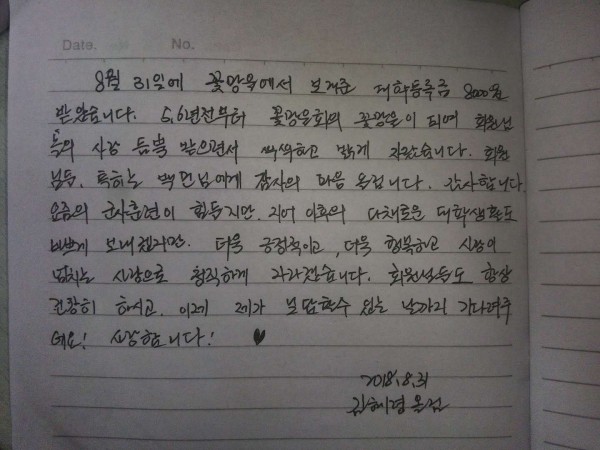 Date. No.
8월 31일에 꽃망울에서 보내준 대학등록금 8000원
받았습니다. 5,6년전부터 꽃망울회의 꽃망울이 되여 회원님
들의 사랑 듬뿍 받으면서 씩씩하고 밝게 자랐습니다. 회원
님들, 특히는 백민님에게 감사의 마음 올립니다. 감사합니다.
요즘의 군사훈련이 힘들지만, 지어 이후의 다채로운 대학생활도
바쁘게 보내겠지만. 더욱 긍정적이고, 더욱 행복하고 사랑이
넘치는 사람으로 씩씩하게 자라겠습니다. 회원님들도 항상
건강히 하시고, 이제 제가 보답할수 있는 날까지 기다려주
세요! 사랑합니다! ♥
2018.8.31
김혜경 올림